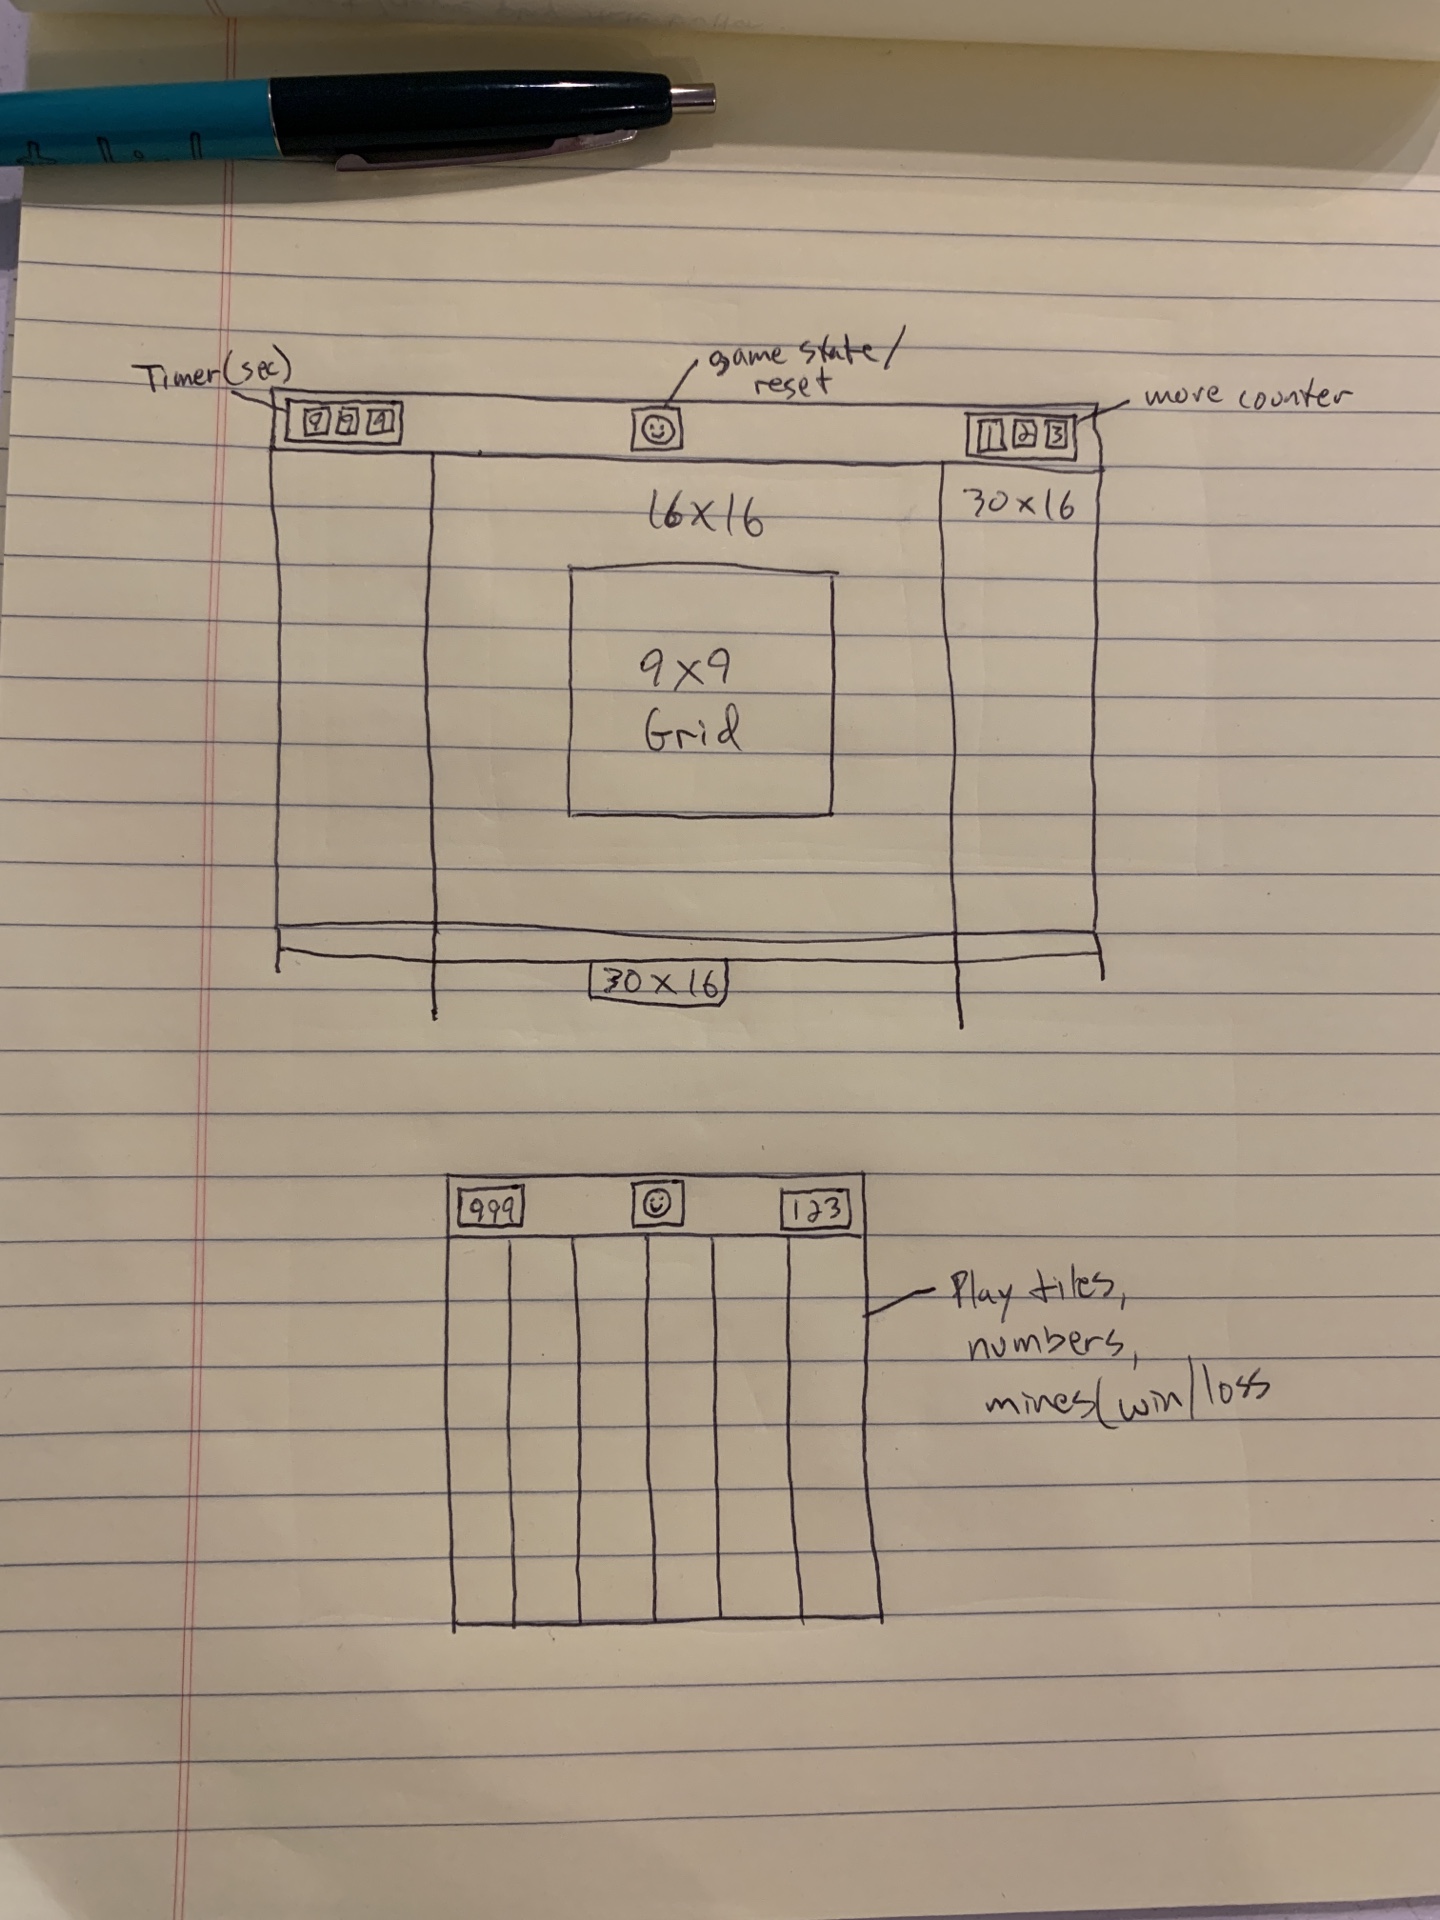 Timer(sec)
game state/
reset
move counter
999
123
16x16
30x16
9x9
Grid
30x16
999
123
Play tiles,
numbers,
mines(win/loss